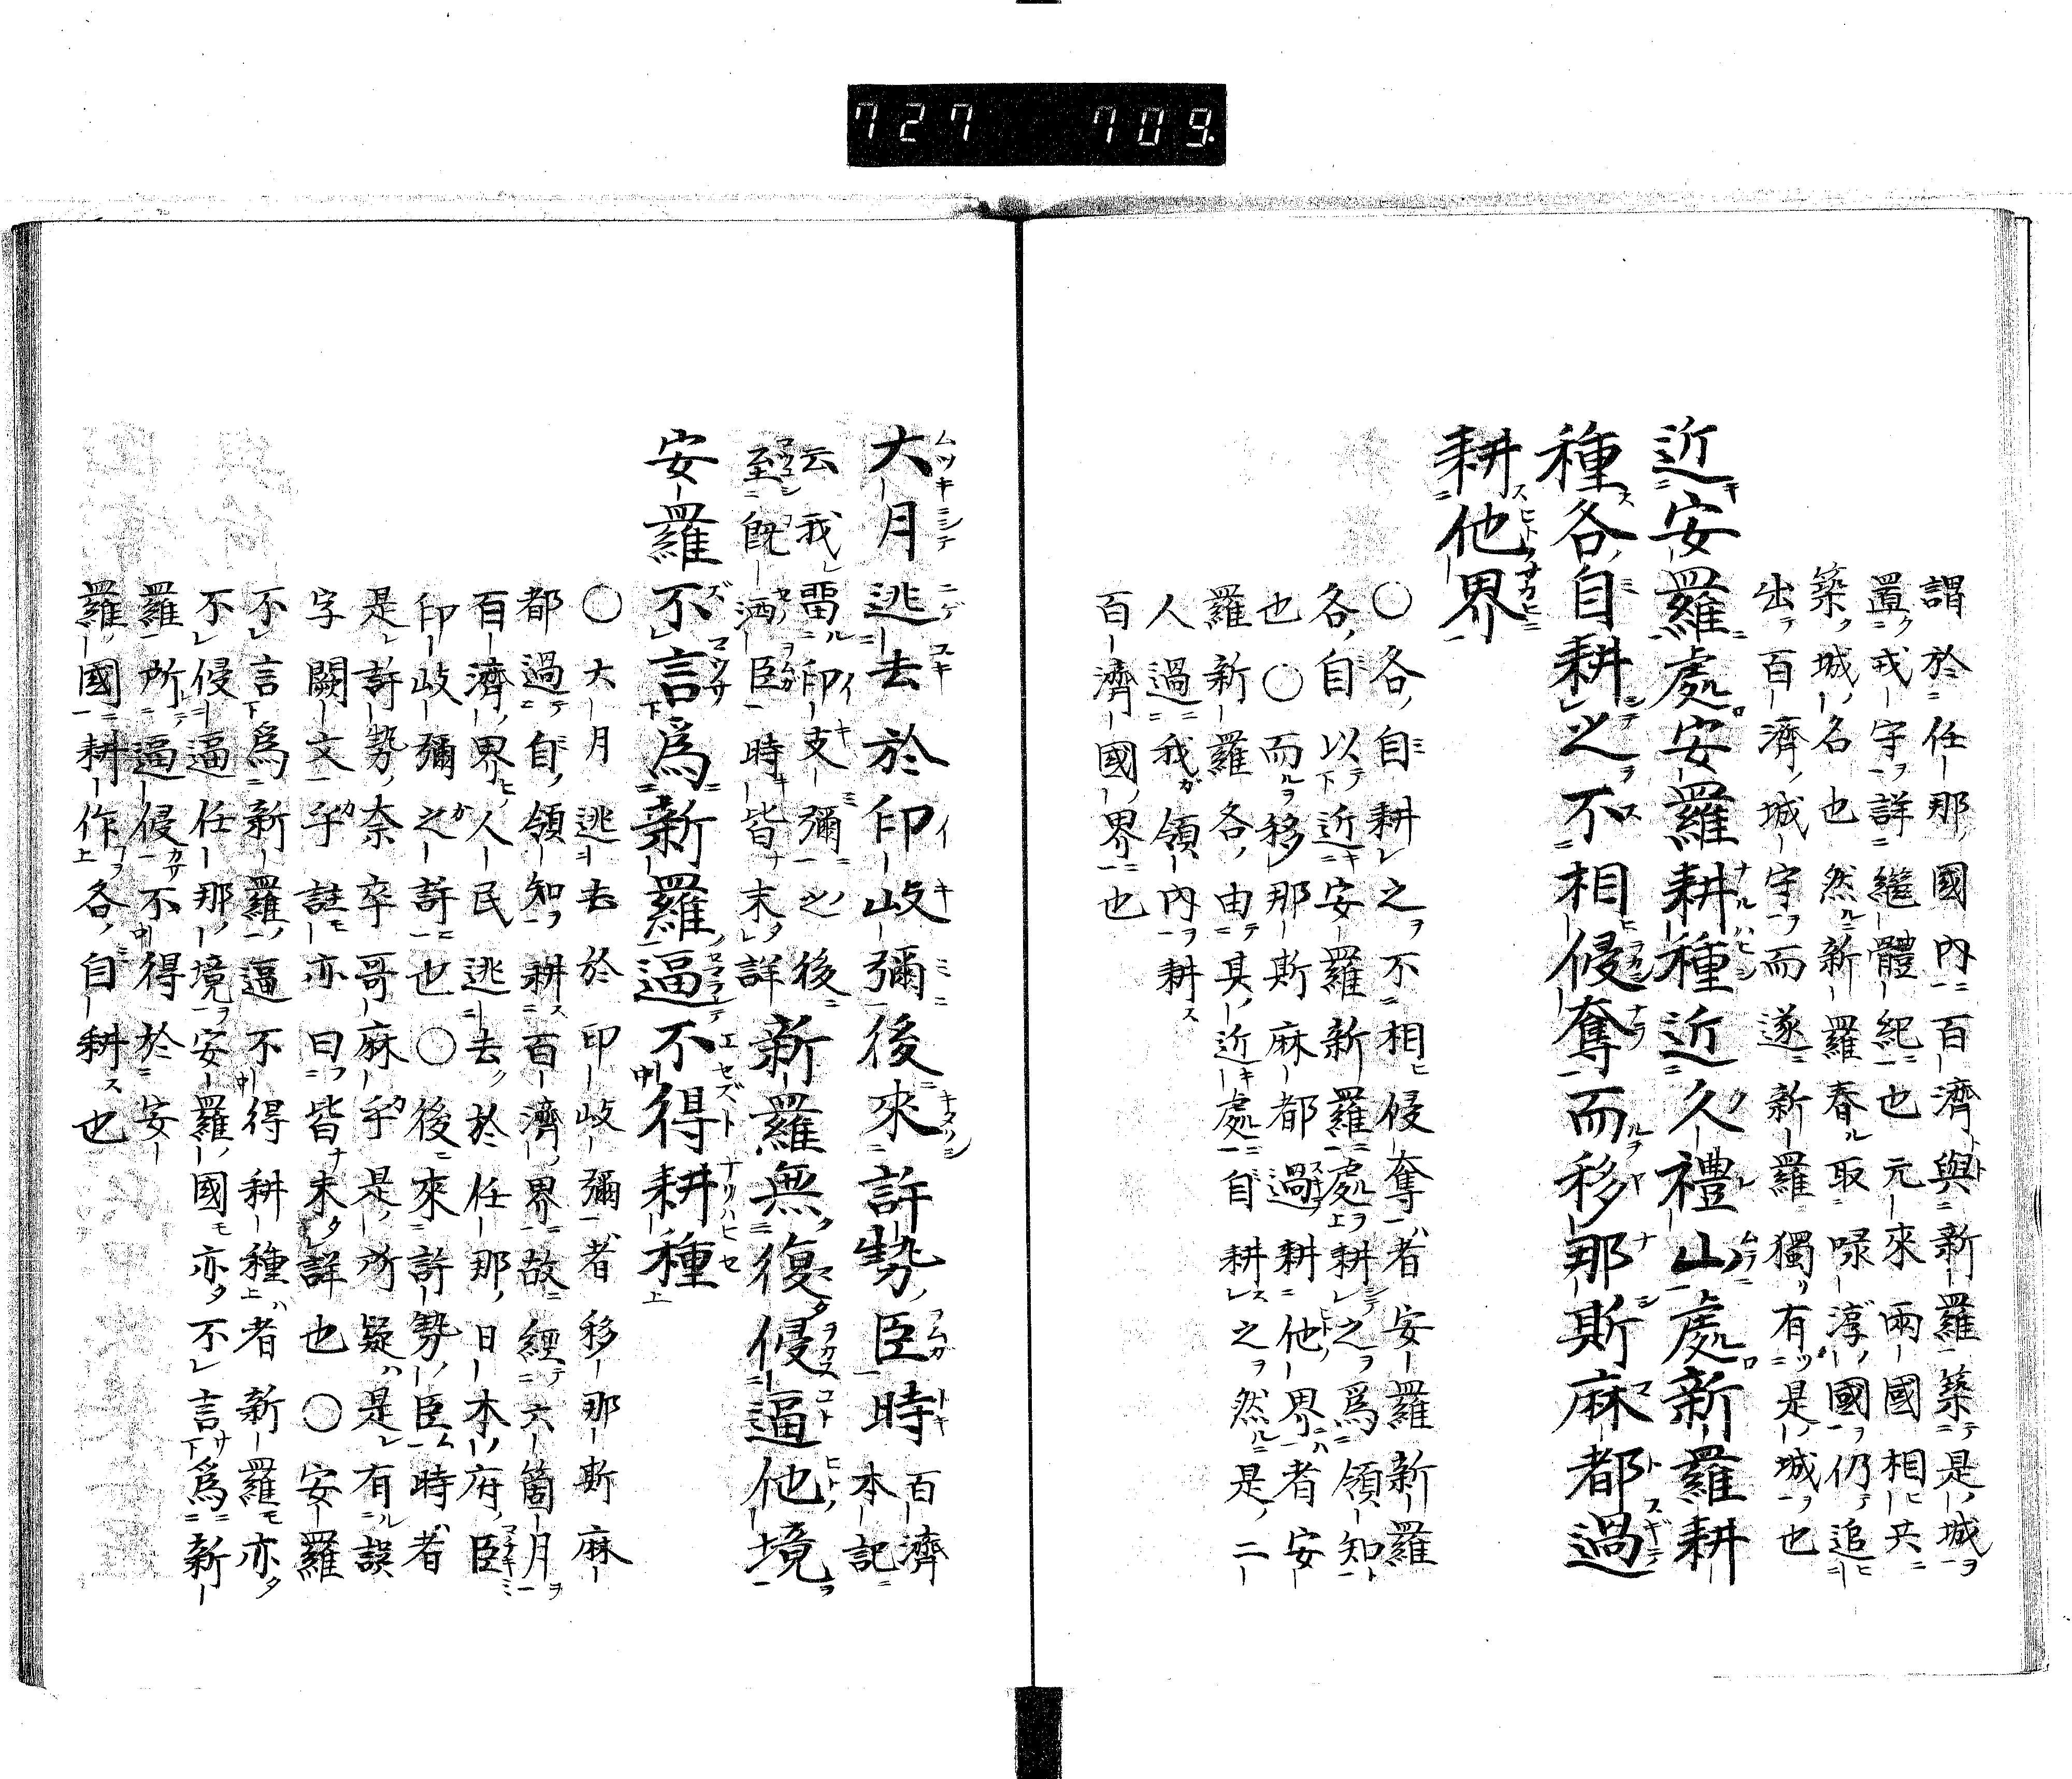 727 709.
謂於任那國内百濟與新羅築是城
置戍守詳繼體紀也元來兩國相共
築城名也然新羅春取㖨淳國仍追
出百濟城守而遂新羅獨有是城也
近安羅處安羅耕種近久禮山處新羅耕
種各自耕之不相侵奪而移那斯麻都過
耕他界
○各自耕之不相侵奪者安羅新羅
各自以近安羅新羅處耕之爲領知
也○而移那斯麻都過耕他界者安
羅新羅各由其近處自耕之然是二
人過我領内耕
百濟國界也
大月逃去於印岐彌後來許勢臣時百濟本記
云我留印支彌之後
至既洒臣時皆未詳新羅無復侵逼他境
安羅不言爲新羅逼不得耕種
○大月逃去於印岐彌者移那斯麻
都過自領知耕百濟界故經六箇月
百濟界人民逃去於任那日本府臣
印岐彌之許也○後來許勢臣時者
是許勢奈卒哥麻乎是所疑是有誤
字闕文乎註亦曰皆未詳也○安羅
不言爲新羅逼不得耕種者新羅亦
不侵逼任那境安羅國亦不言爲新
羅所逼侵不得於安
羅國耕作各自耕也